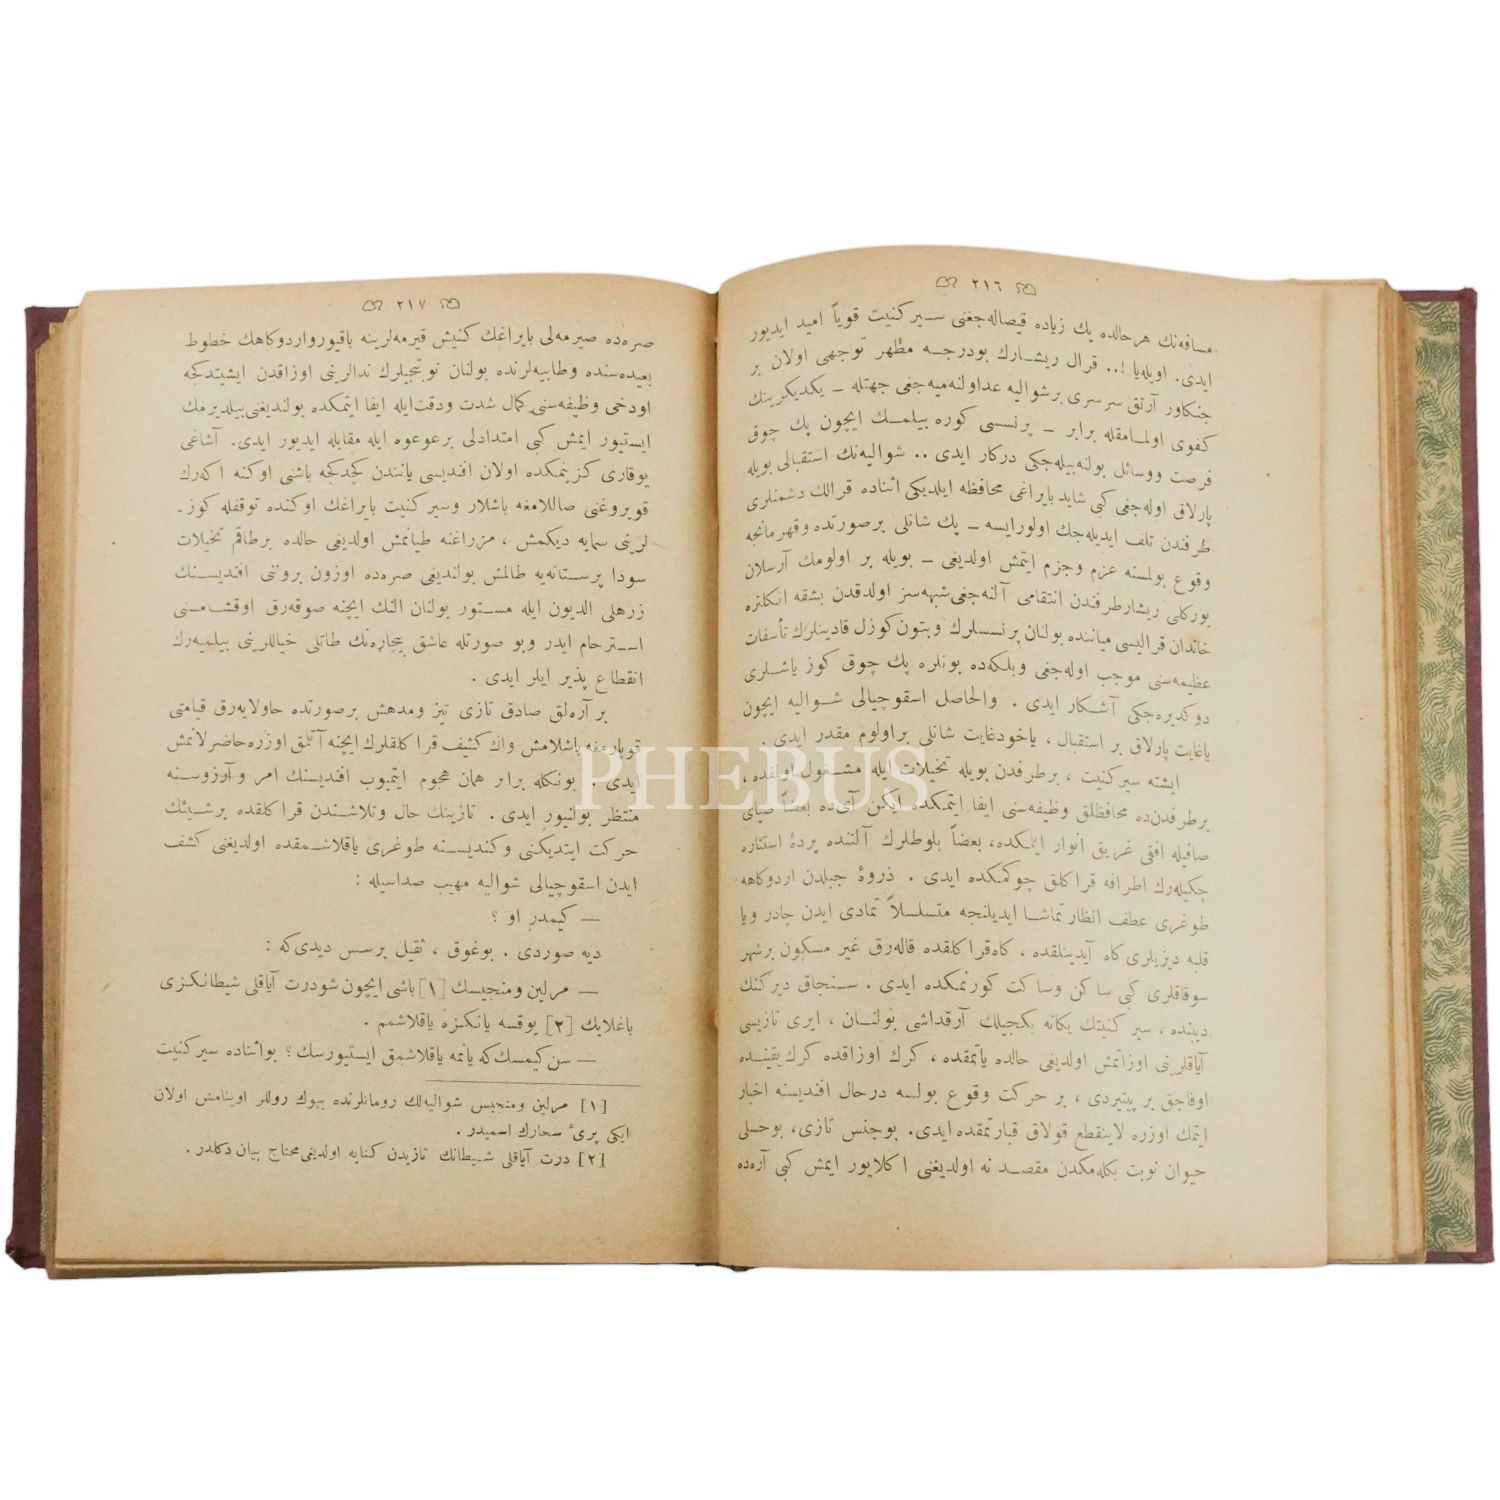 ٢١٦
مسافه‌نك هر حالده پك زیاده قیصاله‌جغنی سیركنیت قویاً امید ایدیور
ایدی. اویله‌یا !.. قرال ریشارك بودرجه مظهر توجهی اولان بر
جنكاور آرتق سرسری برشوالیه عداولنه‌میه‌جغی جهتله ــ یكدیكرینك
كفوی اولمامقله برابر ــ پرنسسی كوره بیلمك ایچون پك چوق
فرصت ووسائل بولنه‌بیله‌جكی دركار ایدی .. شوالیه‌نك استقبالی بویله
پارلاق اوله‌جغی كبی شاید بایراغی محافظه ایلدیكی اثناده قرالك دشمنلری
طرفندن تلف ایدیله‌جك اولورایسه ــ پك شانلی برصورتده وقهرمانجه
وقوع بولمسنه عزم وجزم ایتمش اولدیغی ــ بویله بر اولومك آرسلان
یوركلی ریشارطرفندن انتقامی آلنه‌جغی شبهه‌سز اولدقدن بشقه انكلتره
خاندان قرالیسی میاننده بولنان پرنسسلرك وبتون كوزل قادینلرك تأسفات
عظیمه‌سنی موجب اوله‌جغی وبلكه‌ده بونلره پك چوق كوز یاشلری
دوكدیره‌جكی آشكار ایدی . والحاصل اسقوچیالی شوالیه ایچون
یاغایت پارلاق بر استقبال ، یاخودغایت شانلی براولوم مقدر ایدی .
ایشته سیركنیت ، برطرفدن بویله تخیلات ایله مشغول اولقده ،
برطرفدن‌ده محافظلق وظیفه‌سنی ایفا ایتمكده ایكن آی‌ده بعضاً ضیای
صافیله افقی غریق انوار ایتمكده، بعضاً بلوطلرك آلتنده پردهٔ استتاره
چكیله‌رك اطرافه قراكلق چوكمكده ایدی . ذروهٔ جبلدن اردوكاهه
طوغری عطف انظار تماشا ایدیلنجه متسلسلاً تمادی ایدن چادر ویا
قلبه دیزیلری كاه آیدینلقده ، كاه‌قراكلقده قاله‌رق غیر مسكون برشهر
سوقاقلری كبی ساكن وساكت كورنمكده ایدی . سنجاق دیركنك
دیبنده ، سیركنیتك یكانه بكجیلك آرقداشی بولنان ، ایری تازیسی
آیاقلرینی اوزاتمش اولدیغی حالده یاتمقده ، كرك اوزاقده كرك یقینده
اوفاجق بر پیتیردی ، بر حركت وقوع بولسه درحال افندیسنه اخبار
ایتمك اوزره لاینقطع قولاق قبارتمقده ایدی. بوجنس تازی، بوحسلی
حیوان نوبت بكله‌مكدن مقصد نه اولدیغنی اكلایور ایمش كبی آره‌ده
٢١٧
صره‌ده صیرمه‌لی بایراغك كنیش قیرمه‌لرینه باقیورواردوكاهك خطوط
بعیده‌سنده وطابیه‌لرنده بولنان نوبتجیلرك ندالرینی اوزاقدن ایشیتدكجه
اودخی وظیفه‌سنی كمال شدت ودقت‌ایله ایفا ایتمكده بولندیغنی بیلدیرمك
ایستیور ایمش كبی امتدادلی برعوعوه ایله مقابله ایدیور ایدی. آشاغی
یوقاری كزینمكده اولان افندیسی یانندن كچدكجه باشنی اوكنه اكه‌رك
قویروغنی صاللامغه باشلار وسیر كنیت بایراغك اوكنده توقفله كوز-
لرینی سمایه دیكمش ، مزراغنه طیانمش اولدیغی حالده برطاقم تخیلات
سودا پرستانه‌یه طالمش بولندیغی صره‌ده اوزون بروننی افندیسنك
زرهلی الدیون ایله مستور بولنان النك ایچنه صوقه‌رق اوقشامسنی
استرحام ایدر وبو صورتله عاشق بیچاره‌نك طاتلی خیاللرینی بیلمیه‌رك
انقطاع پذیر ایلر ایدی .
بر آره‌لق صادق تازی تیز ومدهش برصورتده حاولایه‌رق قیامتی
قوپارمغه باشلامش واك كشف قراكلقلرك ایچنه آتلق اوزره‌حاضرلانمش
ایدی . بونكله برابر همان هجوم ایتمیوب افندیسنك امر وآرزوسنه
منتظر بولنیور ایدی . تازینك حال وتلاشندن قراكلقده برشیئك
حركت ایتدیكنی وكندیسنه طوغری یاقلاشمقده اولدیغنی كشف
ایدن اسقوچیالی شوالیه مهیب صداسیله :
ــ كیمدر او ؟
دیه صوردی . بوغوق ، ثقیل برسس دیدی‌كه :
ــ مرلین ومنجیسك [١] باشی ایچون شودرت آیاقلی شیطانكزی
باغلایك [٢] یوقسه یانكزه یاقلاشمم .
ــ سن كیمسك‌كه یانمه یاقلاشمق ایستیورسك ؟ بواثناده سیركنیت
[١] مرلین ومنجیس شوالیه‌لك رومانلرنده بیوك روللر اوینامش اولان
ایكی پریٔ سحارك اسمیدر .
[٢] درت آیاقلی شیطانك تازیدن كنایه اولدیغی محتاج بیان دكلدر .
PHEBUS